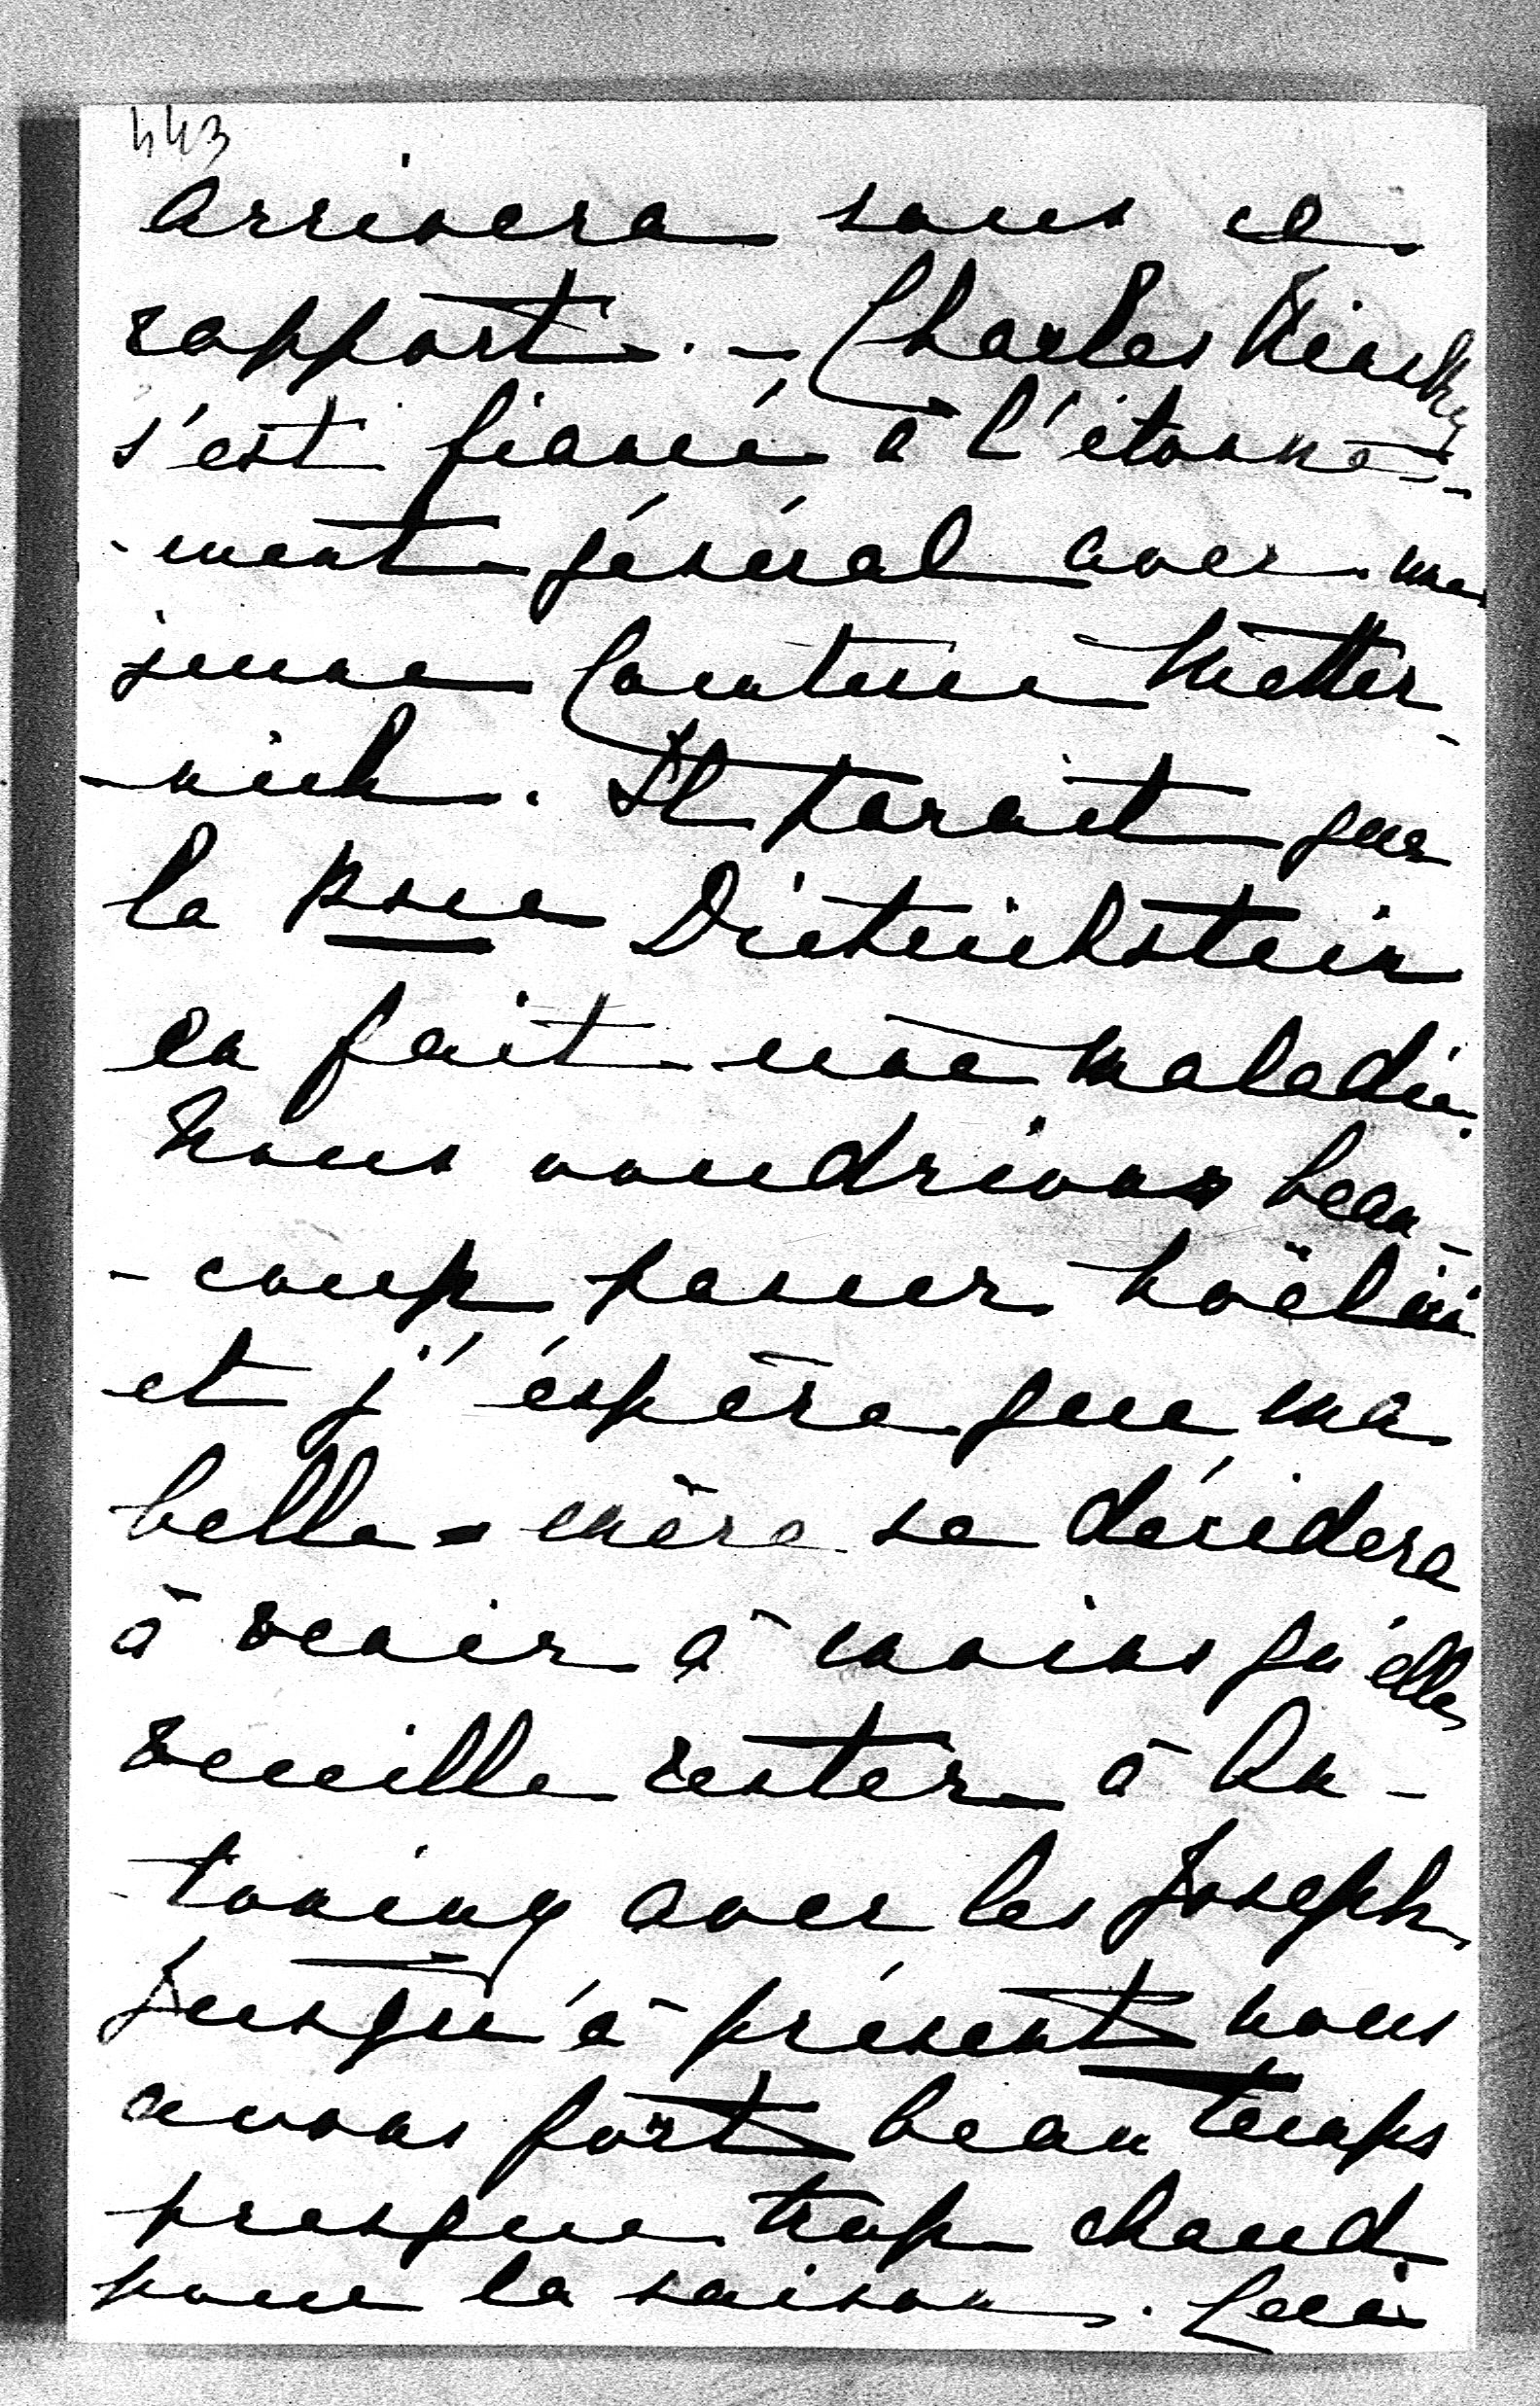 443
arrivera sous ce
rapport. – Charles Kinsky
s'est fiancé à l'étonne-
-ment général avec une
jeune Comtesse Metter-
-nich. Il parait que
la Psse Dietrichstein
en fait une maladie.
Nous voudrions beau-
-coup passer Noël ici
et j'éspère que ma
belle-mère se décidera
à venir à moins qu'elle
veuille rester à An-
-toniny avec les Joseph.
Jusqu'à présent nous
avons fort beau temps
presque trop chaud
pour la saison. Ceci